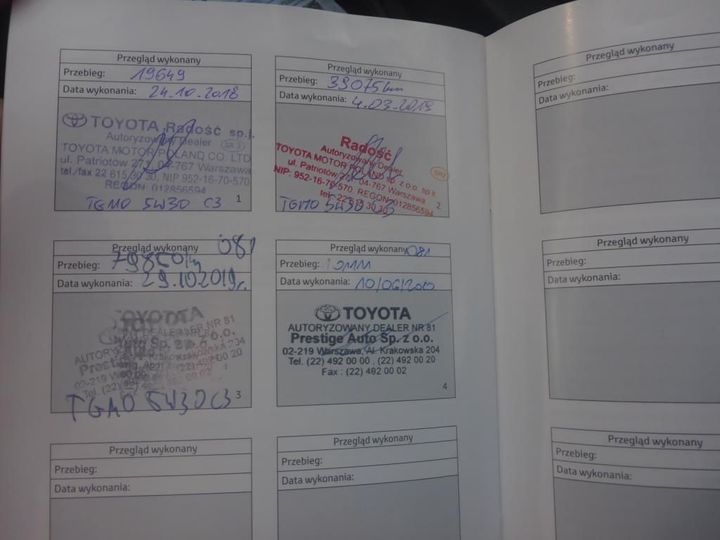 Przegląd wykonany
Przebieg: 19649
Data wykonania: 24.10.2018
TOYOTA Radość sp.j.
Autoryzowany Dealer
TOYOTA MOTOR POLAND CO. LTD
ul. Patriotów 04-767 Warszawa
tel./fax 22 615 30 30, NIP 952-16-70-570
REGON: 012856594
1
TGMO 5W30 C3
Przegląd wykonany
Przebieg: 39075 km
Data wykonania: 4.03.2019
Radość
Autoryzowany Dealer
TOYOTA MOTOR POLAND sp. z o.o. sp. k.
ul. Patriotów 04-767 Warszawa
NIP: 952-16-70-570 REGON: 012856594
tel. 22 615 30 30
2
TGMO 5W30 C3
Przegląd wykonany 081
Przebieg:
Data wykonania: 29.10.2019r.
TOYOTA
DEALER NR 81
Sp. z o.o.
02-219 Warszawa, Krakowska 204
Tel. (22) 492 00 00, 00 20
3
TGMO 5W30 C3
Przegląd wykonany 081
Przebieg:
Data wykonania: 10/06/2020
TOYOTA
AUTORYZOWANY DEALER NR 81
Prestige Auto Sp. z o.o.
02-219 Warszawa, Al. Krakowska 204
Tel. (22) 492 00 00, (22) 492 00 20
Fax : (22) 492 00 02
4
Przegląd wykonany
Przebieg:
Data wykonania:
Przegląd wykonany
Przebieg:
Data wykonania:
Przegląd wykonany
Przebieg:
Data wykonania:
Przegląd wykonany
Przebieg:
Data wykonania:
Przegląd wykonany
Przebieg:
Data wykonania: